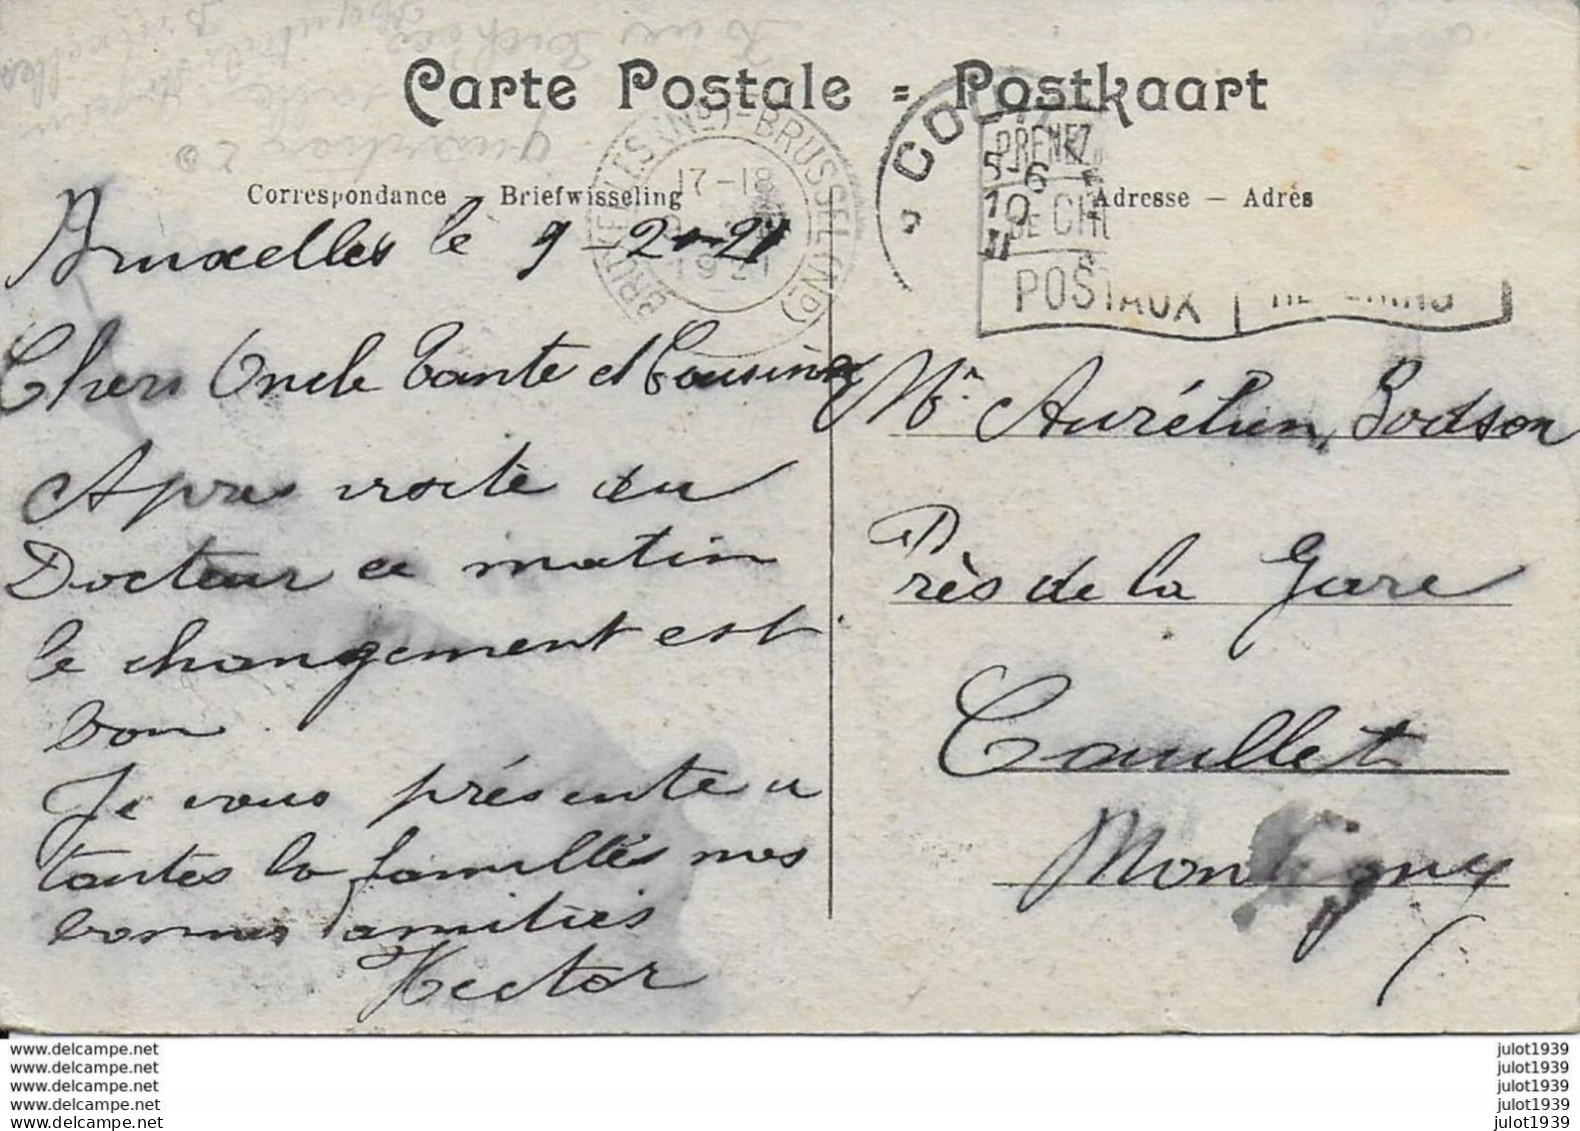 Carte Postale = Postkaart
Correspondance — Briefwisseling
Adresse — Adrés
BRUXELLES (NO) - BRUSSEL (NO)
17-18
1921
PRENEZ
5-6
10
DE CH
II
POSTAUX
Bruxelles le 9-2-21
Chers Oncle Tante et Cousine
Apres visite du
Docteur ce matin
le changement est
bon
Je vous présente a
toutes la familles mes
bonnes amitiés
Hector
Mr Aurélien Bodson
Près de la Gare
Couillet
Montigny
www.delcampe.net
www.delcampe.net
www.delcampe.net
www.delcampe.net
www.delcampe.net
julot1939
julot1939
julot1939
julot1939
julot1939